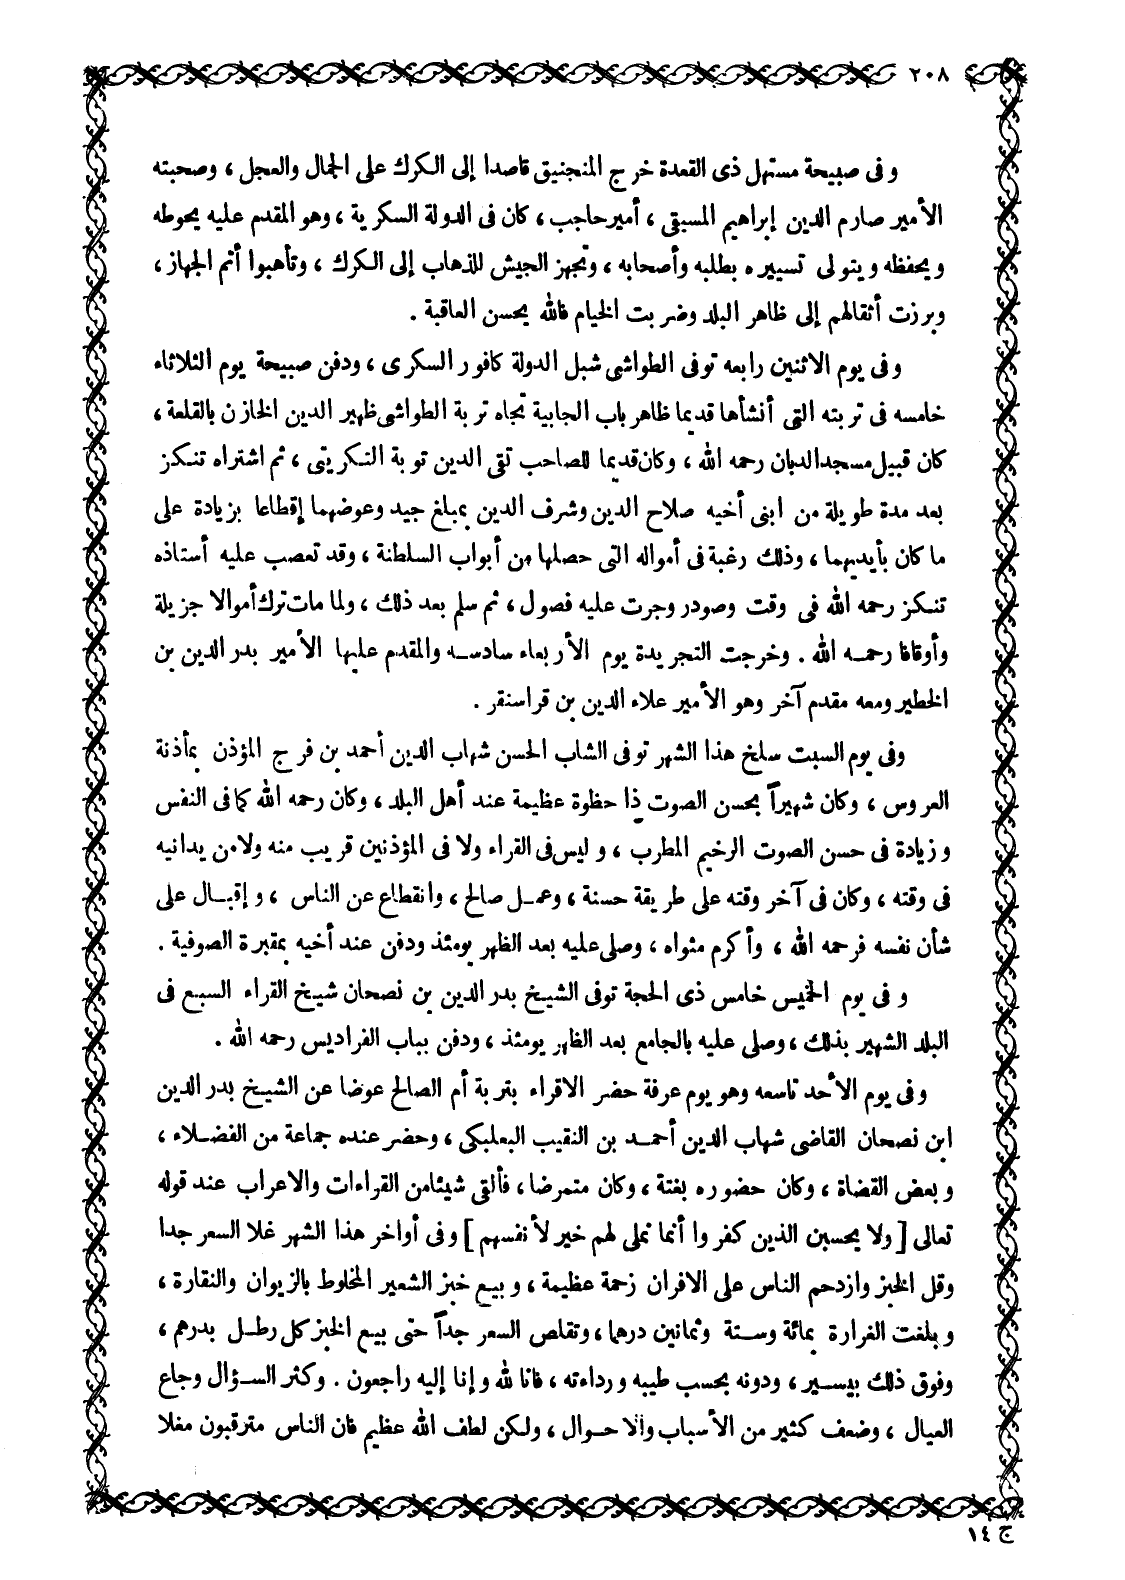 ٢٠٨
وفى صبيحة مستهل ذى القعدة خرج المنجنيق قاصدا إلى الكرك على الجمال والعجل ، وصحبته
الأمير صارم الدين إبراهيم المسبقى ، أمير حاجب ، كان فى الدولة السكرية ، وهو المقدم عليه يحوطه
ويحفظه ويتولى تسييره بطلبه وأصحابه ، وتجهز الجيش للذهاب إلى الكرك ، وتأهبوا أتم الجهاز ،
وبرزت أثقالهم إلى ظاهر البلد وضربت الخيام فالله يحسن العاقبة .
وفى يوم الاثنين رابعه توفى الطواشى شبل الدولة كافور السكرى ، ودفن صبيحة يوم الثلاثاء
خامسه فى تربته التى أنشأها قديما ظاهر باب الجابية تجاه تربة الطواشى ظهير الدين الخازن بالقلعة ،
كان قبيل مسجد الدبان رحمه الله ، وكان قديما للصاحب تقى الدين توبة التكريتى ، ثم اشتراه تنكز
بعد مدة طويلة من ابنى أخيه صلاح الدين وشرف الدين بمبلغ جيد وعوضهما إقطاعا بزيادة على
ما كان بأيديهما ، وذلك رغبة فى أمواله التى حصلها من أبواب السلطنة ، وقد تعصب عليه أستاذه
تنكز رحمه الله فى وقت وصودر وجرت عليه فصول ، ثم سلم بعد ذلك ، ولما مات ترك أموالا جزيلة
وأوقافا رحمه الله . وخرجت التجريدة يوم الأربعاء سادسه والمقدم عليها الأمير بدر الدين بن
الخطير ومعه مقدم آخر وهو الأمير علاء الدين بن قراسنقر .
وفى يوم السبت سلخ هذا الشهر توفى الشاب الحسن شهاب الدين أحمد بن فرج المؤذن بمأذنة
العروس ، وكان شهيراً بحسن الصوت ذا حظوة عظيمة عند أهل البلد ، وكان رحمه الله كما فى النفس
وزيادة فى حسن الصوت الرخيم المطرب ، وليس فى القراء ولا فى المؤذنين قريب منه ولا من يدانيه
فى وقته ، وكان فى آخر وقته على طريقة حسنة ، وعمل صالح ، وانقطاع عن الناس ، وإقبال على
شأن نفسه فرحمه الله ، وأكرم مثواه ، وصلى عليه بعد الظهر يومئذ ودفن عند أخيه بمقبرة الصوفية .
وفى يوم الخميس خامس ذى الحجة توفى الشيخ بدر الدين بن نصحان شيخ القراء السبع فى
البلد الشهير بذلك ، وصلى عليه بالجامع بعد الظهر يومئذ ، ودفن بباب الفراديس رحمه الله .
وفى يوم الأحد تاسعه وهو يوم عرفة حضر الاقراء بتربة أم الصالح عوضا عن الشيخ بدر الدين
ابن نصحان القاضى شهاب الدين أحمد بن النقيب البعلبكى ، وحضر عنده جماعة من الفضلاء ،
وبعض القضاة ، وكان حضوره بغتة ، وكان متمرضا ، فألقى شيئا من القراءات والاعراب عند قوله
تعالى [ ولا يحسبن الذين كفروا أنما نملى لهم خير لأنفسهم ] وفى أواخر هذا الشهر غلا السعر جدا
وقل الخبز وازدحم الناس على الافران زحمة عظيمة ، وبيع خبز الشعير المخلوط بالزيوان والنقارة ،
وبلغت الغرارة بمائة وستة وثمانين درهما ، وتقلص السعر جداً حتى بيع الخبز كل رطل بدرهم ،
وفوق ذلك بيسير ، ودونه بحسب طيبه ورداءته ، فانا لله وإنا إليه راجعون . وكثر السؤال وجاع
العيال ، وضعف كثير من الأسباب والاحوال ، ولكن لطف الله عظيم فان الناس مترقبون مغلا
ج ١٤